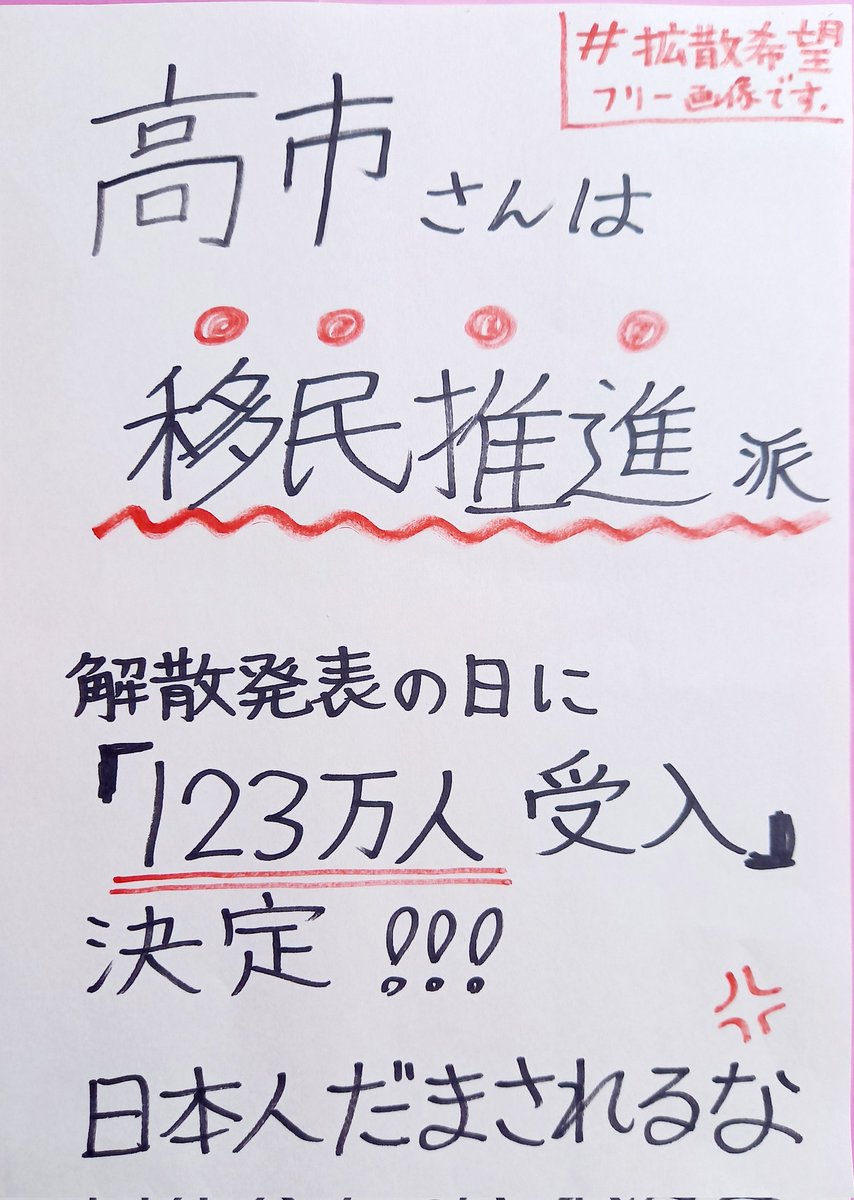 #拡散希望
フリー画像です.
高市さんは
移民推進派
解散発表の日に
『123万人受入』
決定!!!
日本人だまされるな